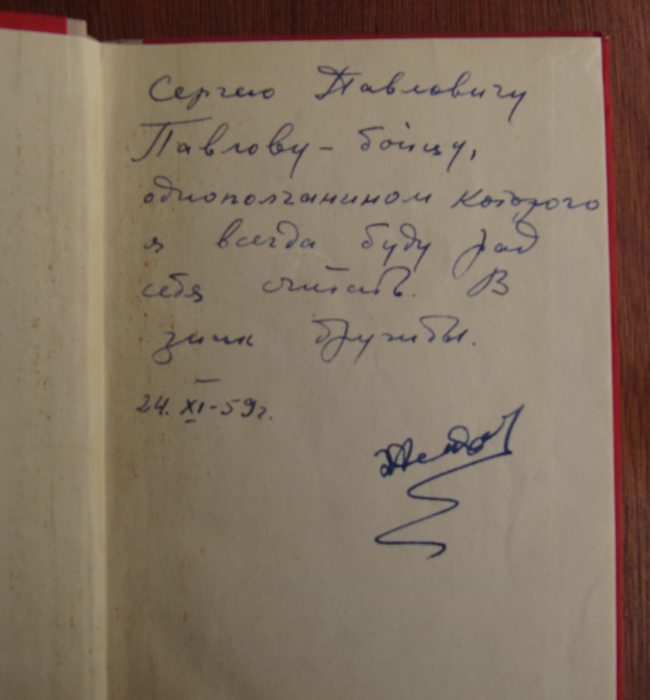 Сергею Павловичу
Павлову - бойцу,
однополчанином которого
я всегда буду рад
себя считать. В
знак дружбы.
24. XI - 59 г.